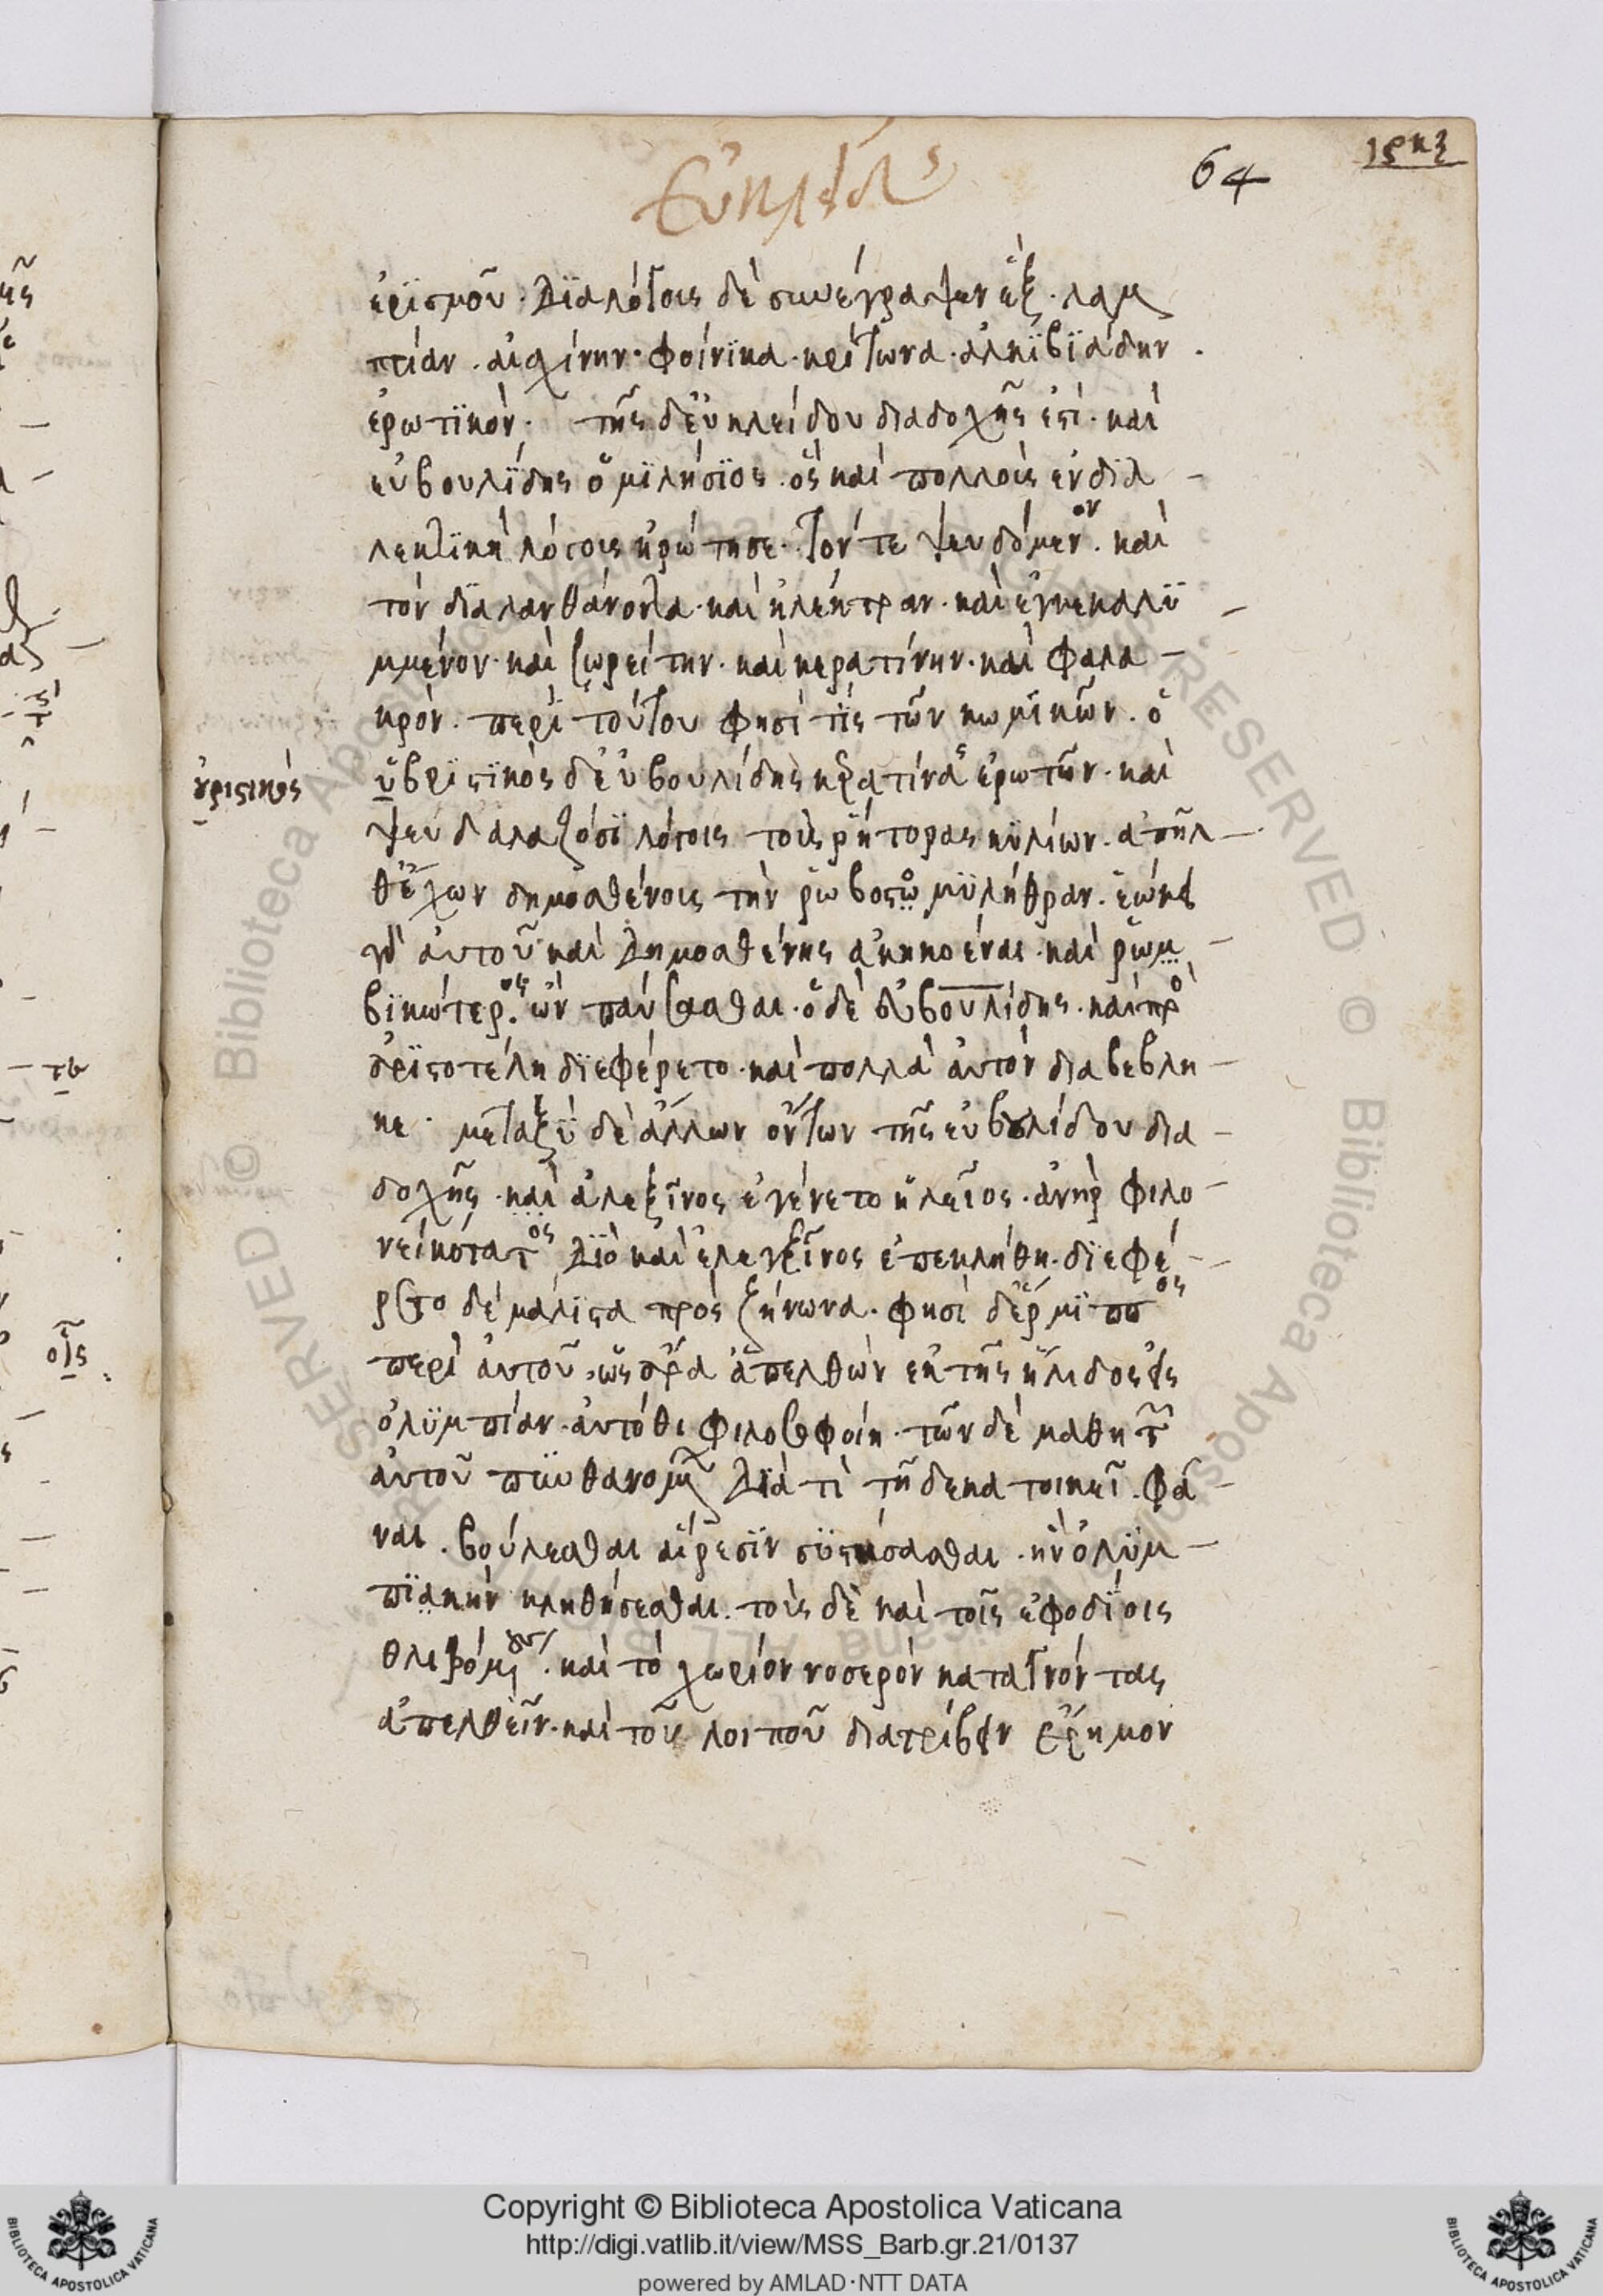 Εὐκλείδης
64
ἐρϊσμοῦ. Δϊαλόγους δὲ συνέγραψεν ἓξ. λαμ
πίαν. αἰσχίνην. φοίνϊκα. κρίτωνα. ἀλκϊβϊάδην.
ἐρωτϊκόν. τῆς δ' εὐκλείδου διαδοχῆς ἐστὶ. καὶ
εὐβουλΐδης ὁ μϊλήσϊος. ὃς καὶ πολλοὺς ἐν δϊα -
λεκτϊκῆ λόγους ἠρώτησε. τόν τε ψευδόμενον. καὶ
τὸν δϊαλανθάνοντα. καὶ ἠλέκτραν. καὶ ἐγκεκαλϋ -
μμένον. καὶ σωρείτην. καὶ κερατίνην. καὶ φαλα -
κρόν. περὶ τούτου φησί τϊς τῶν κωμϊκῶν. ὁ
ὑβρϊστϊκὸς δ' εὐβουλίδης κερατίνας ἐρωτῶν. καὶ
ἐριστικὸς
ψευδαλαζόσϊ λόγοις τοὺς ῥήτορας κϋλίων. ἀπῆλ -
θ' ἔχων δημοσθένους τὴν ῥωβοστω μϋλήθραν. ἐώκει
γὰρ αὐτοῦ καὶ Δημοσθένης ἀκηκοέναι. καὶ ῥωμ -
βϊκώτερος ὢν παύσασθαι. ὁ δὲ εὐβουλίδης. καὶ πρὸς
ἀρϊστοτέλη δϊεφέρετο. καὶ πολλὰ αὐτὸν διαβέβλη -
κε. μεταξὺ δὲ ἄλλων ὄντων τῆς εὐβουλίδου δια -
δοχῆς. καὶ ἀλεξῖνος ἐγένετο ἠλεῖος. ἀνὴρ φιλο -
νεικότατος Δϊὸ καὶ ἐλεγξῖνος ἐπεκλήθη. δϊεφέ -
ρετο δὲ μάλϊστα πρὸς ζήνωνα. φησὶ δ' ἕρμϊππος
περὶ αὐτοῦ, ὡς ἄρα ἀπελθὼν ἐκ τῆς ἤλιδος εἰς
ὀλϋμπίαν. αὐτόθι φιλοσοφοίη. τῶν δὲ μαθητῶν
αὐτοῦ πϋνθανομένων Δϊὰ τί τῆδε κατοικεῖ. φά -
ναι. βούλεσθαι αἵρεσϊν σϋστήσασθαι. ἣν ὀλϋμ -
πϊακὴν κληθήσεσθαι. τοὺς δὲ καὶ τοῖς ἐφοδΐοις
θλιβομένους. καὶ τὸ χωρίον νοσερὸν καταγνόντας
ἀπελθεῖν. καὶ τοῦ λοιποῦ διατρίβειν ἔρημον
Copyright © Biblioteca Apostolica Vaticana
http://digi.vatlib.it/view/MSS_Barb.gr.21/0137
powered by AMLAD·NTT DATA